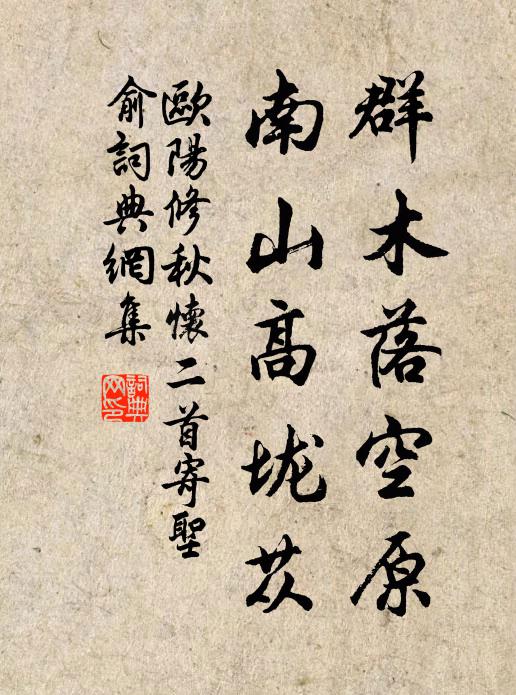 群木落空原
南山高垅苁
歐陽修秋懷二首寄聖
俞詞典網集
詞典
网印